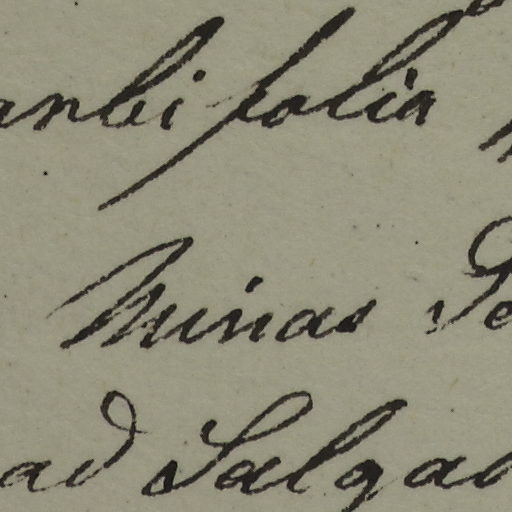 anbifolia
Minas Ge
ad Salgad